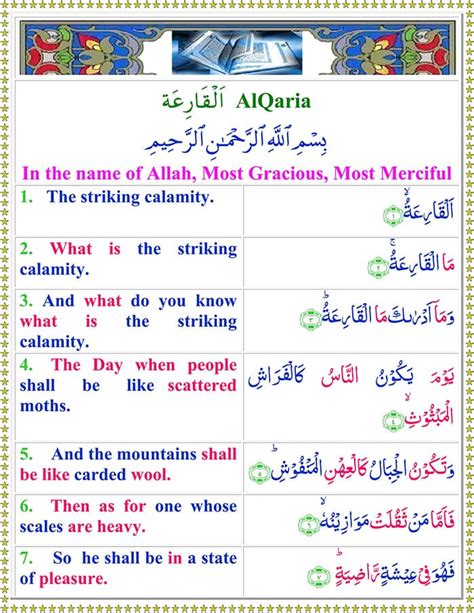 اَلْقَارِعَة AlQaria
بِسْمِ ٱللَّهِ ٱلرَّحْمَـٰنِ ٱلرَّحِيمِ
In the name of Allah, Most Gracious, Most Merciful
1. The striking calamity.
اَلْقَارِعَةُ ۙ ﴿۱﴾
2. What is the striking
calamity.
مَا الْقَارِعَةُ ۚ ﴿۲﴾
3. And what do you know
what is the striking
calamity.
وَمَاۤ اَدْرٰىكَ مَا الْقَارِعَةُ ؕ ﴿۳﴾
4. The Day when people
shall be like scattered
moths.
يَوْمَ يَكُوْنُ النَّاسُ كَالْفَرَاشِ
الْمَبْثُوْثِ ۙ ﴿۴﴾
5. And the mountains shall
be like carded wool.
وَتَكُوْنُ الْجِبَالُ كَالْعِهْنِ الْمَنْفُوْشِ ؕ ﴿۵﴾
6. Then as for one whose
scales are heavy.
فَاَمَّا مَنْ ثَقُلَتْ مَوَازِيْنُهٗ ۙ ﴿۶﴾
7. So he shall be in a state
of pleasure.
فَهُوَ فِىْ عِيْشَةٍ رَّاضِيَةٍ ؕ ﴿۷﴾